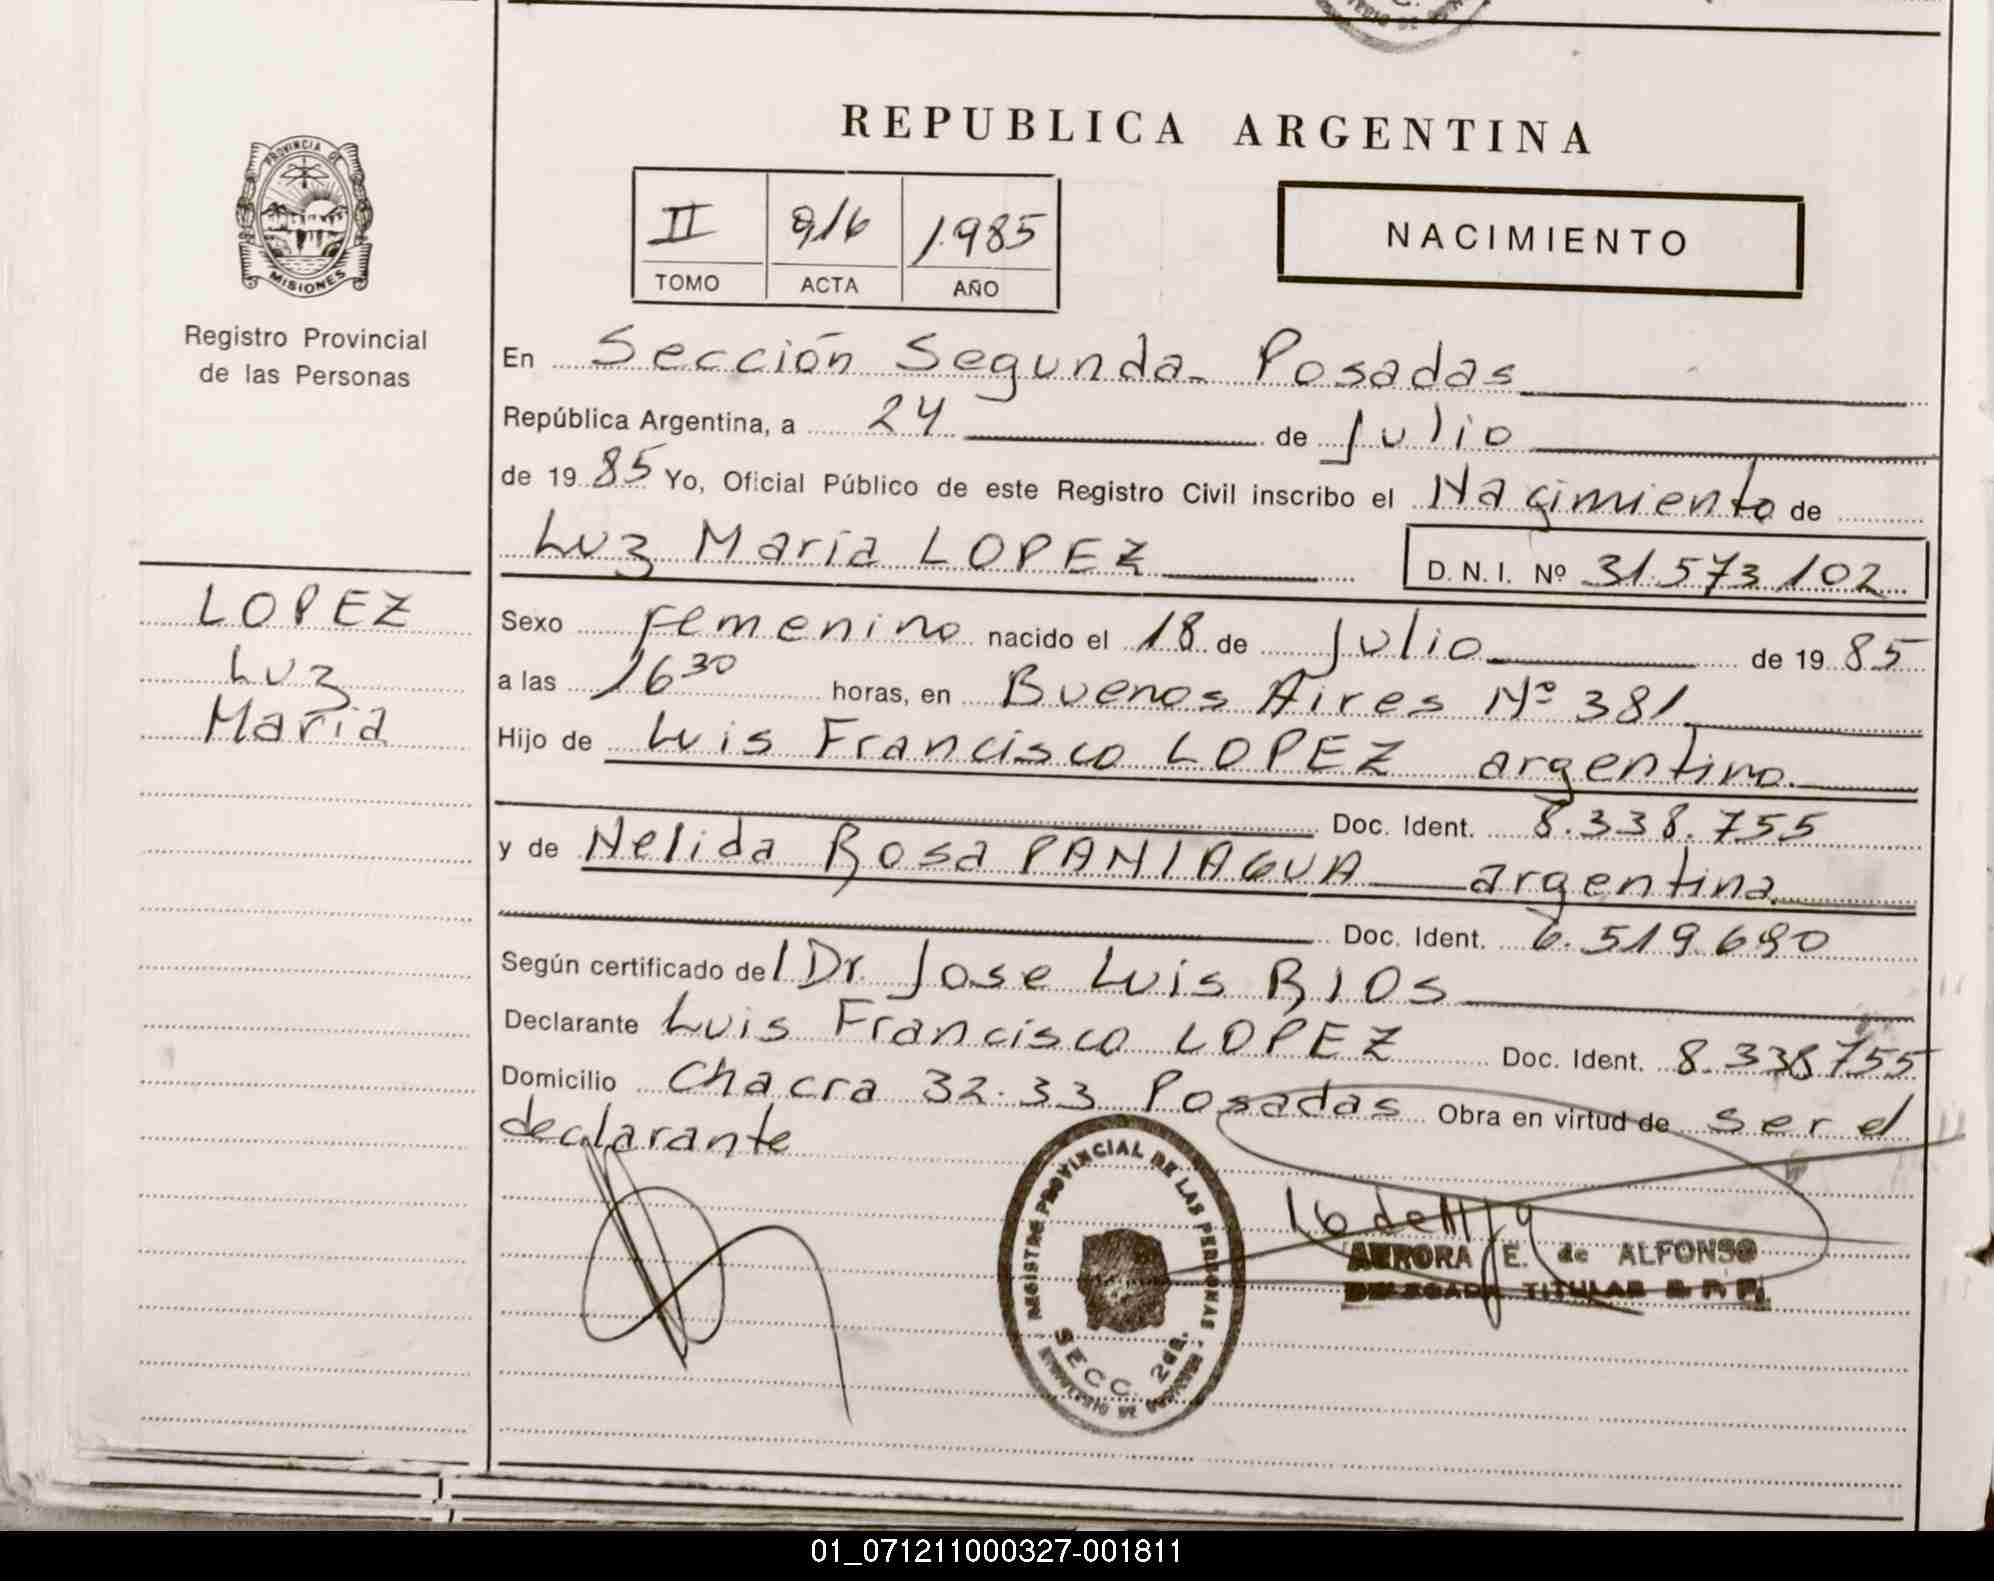 REPUBLICA ARGENTINA
PROVINCIA DE
MISIONES
Registro Provincial
de las Personas
II 916 1.985
TOMO ACTA AÑO
NACIMIENTO
En Sección Segunda Posadas
República Argentina, a 24 de Julio
de 19 85 Yo, Oficial Público de este Registro Civil inscribo el Nacimiento de
Luz María LOPEZ D. N. I. Nº 31.573.102
LOPEZ
Luz
María
Sexo femenino nacido el 18 de Julio de 19 85
a las 16 30 horas, en Buenos Aires Nº 381
Hijo de Luis Francisco LOPEZ argentino.
Doc. Ident. 8.338.755
y de Nelida Rosa PANIAGUA argentina.
Doc. Ident. 6.519.690
Según certificado del Dr. Jose Luis RIOS
Declarante Luis Francisco LOPEZ Doc. Ident. 8.338755
Domicilio Chacra 32-33 Posadas Obra en virtud de ser el
declarante
REGISTRO PROVINCIAL DE LAS PERSONAS
SECC. 2da.
AURORA E. de ALFONSO
DELEGADA TITULAR R. P. P.
01_071211000327-001811